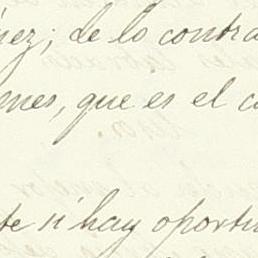 nez; de lo contra
mes, que es el c
te si hay oportu